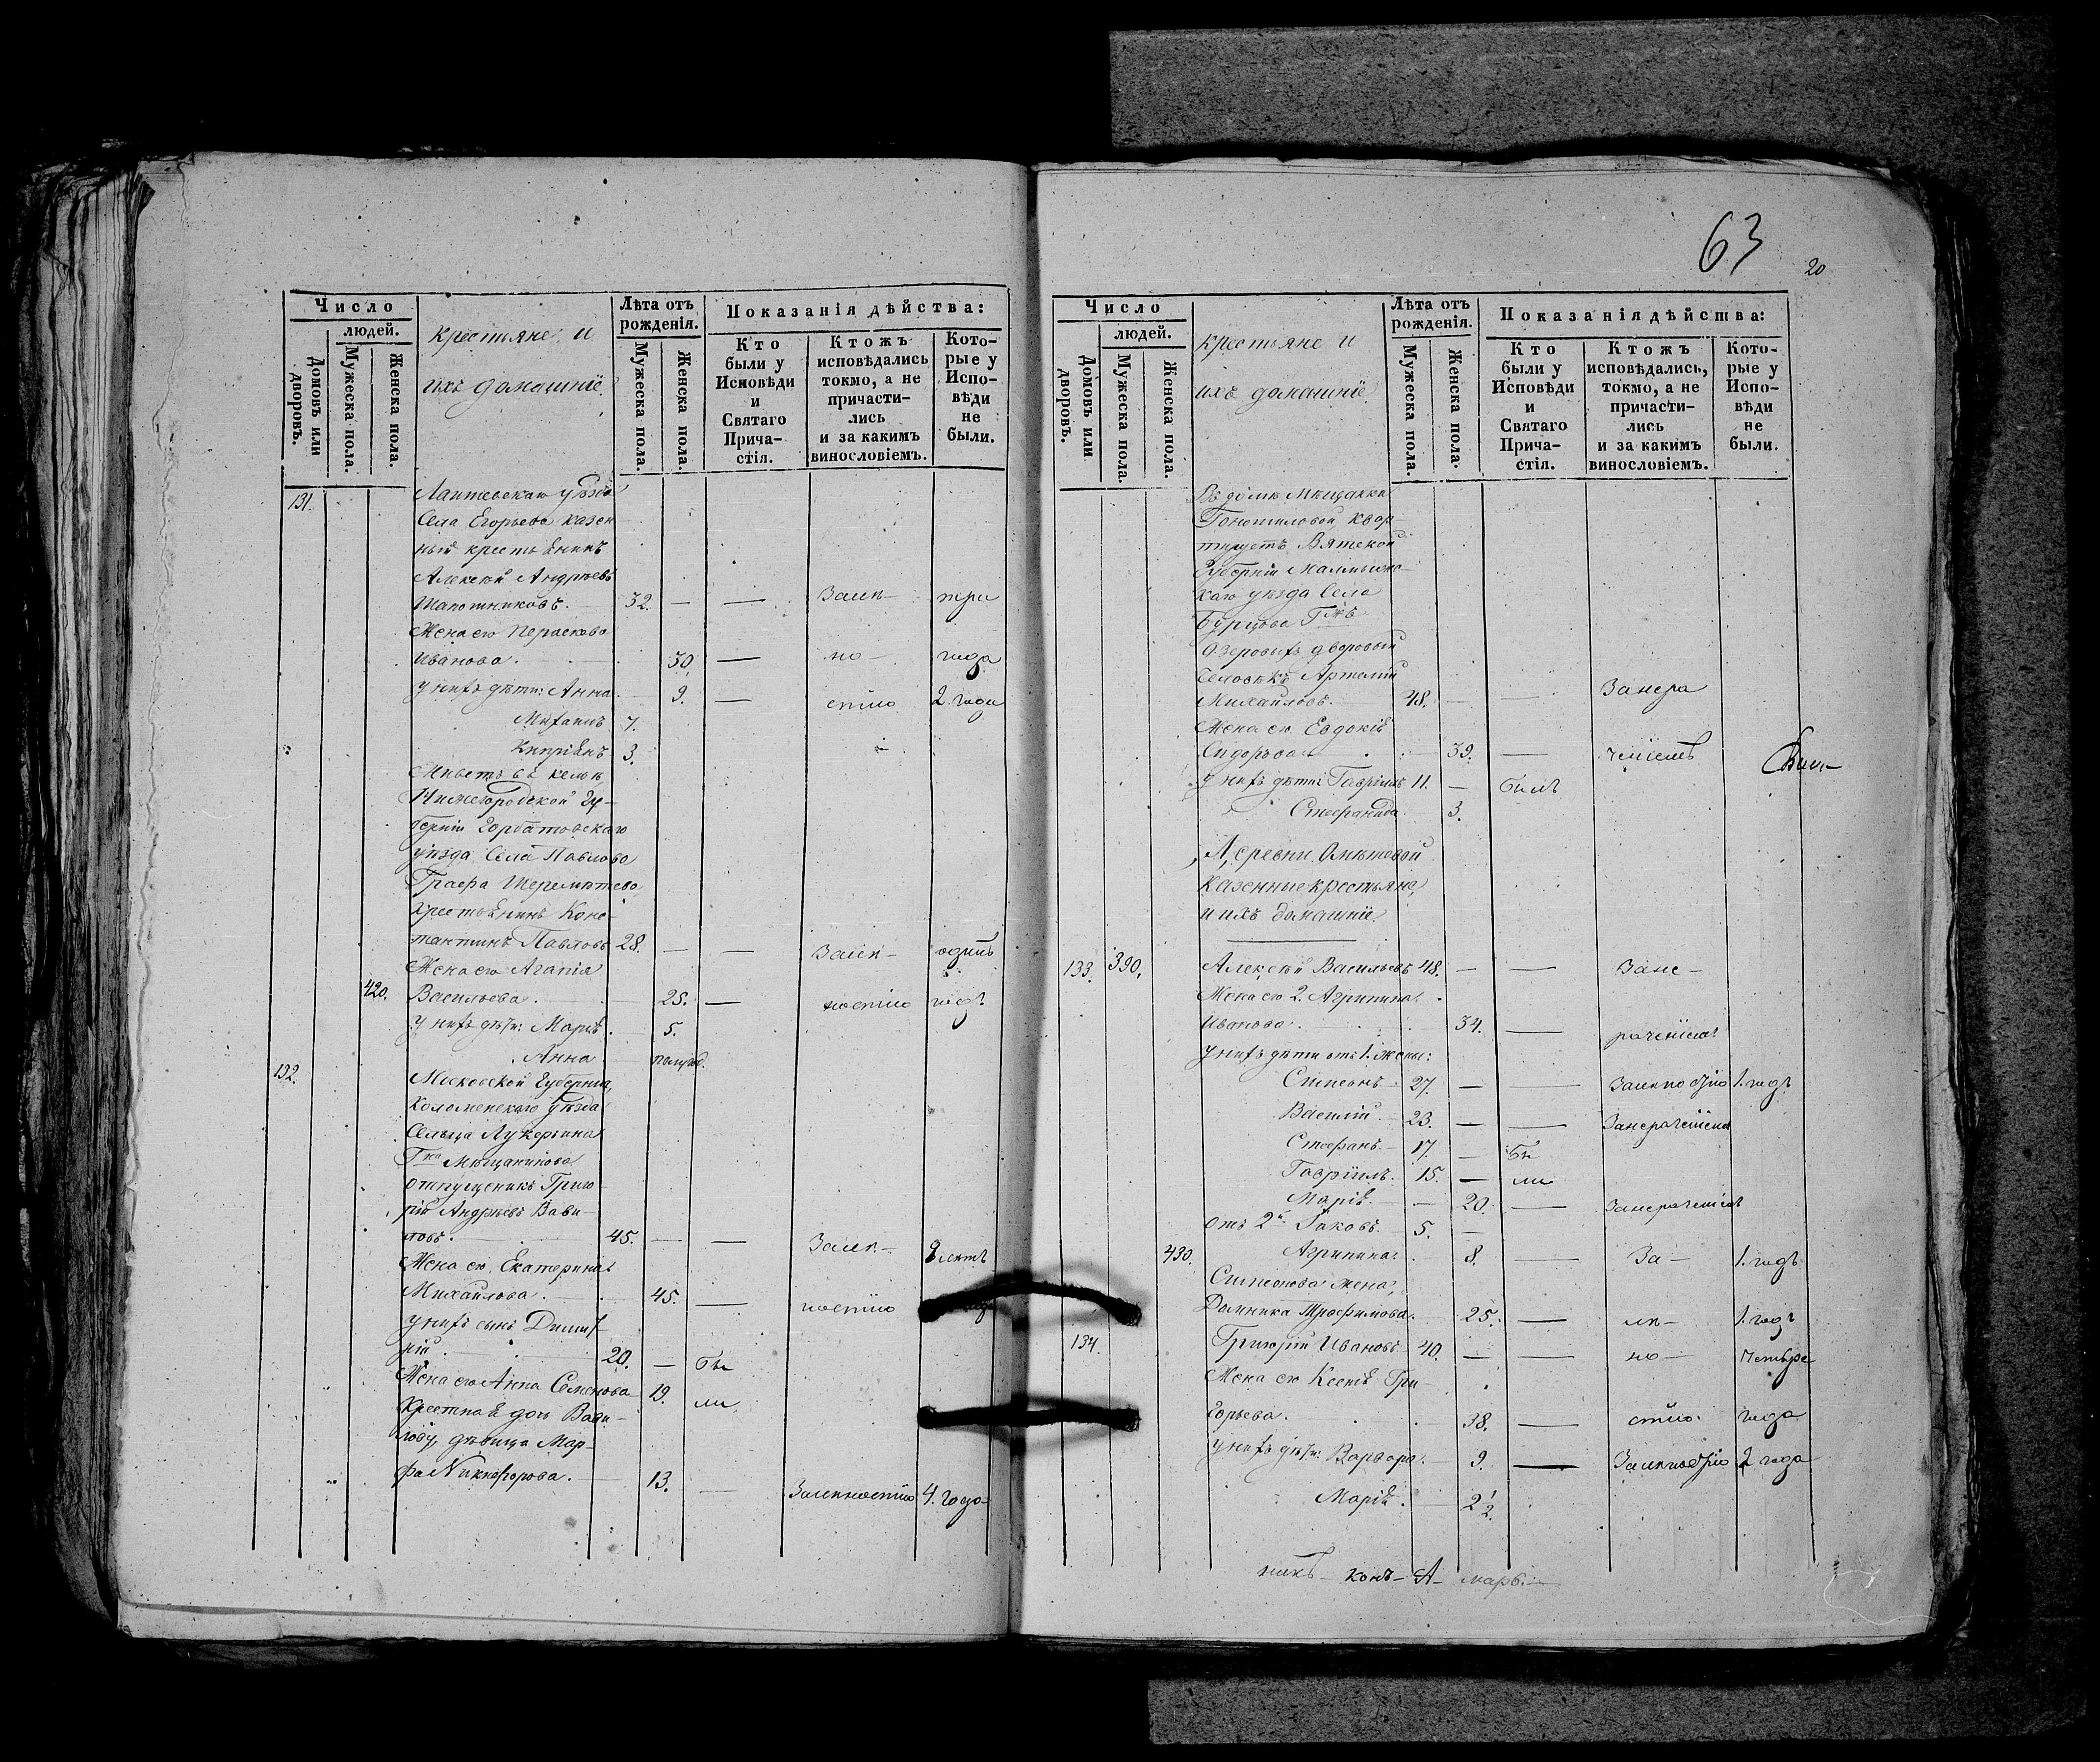 63
20
Число
людей.
Домовъ или дворовъ.
Мужеска пола.
Женска пола.
крестьяне и
ихъ домашніе
Лѣта отъ рожденія.
Мужеска пола.
Женска пола.
Показанія дѣйства:
Кто были у Исповѣди и Святаго Причастія.
Ктожъ исповѣдались токмо, а не причастились и за какимъ винословіемъ.
Которые у Исповѣди не были.
131. Лаишевскаго уѣзда
Села Егорьева казен
ный крестьянинъ
Алексѣй Андреевъ
Шапошниковъ. 32. — — Залѣ— три
Жена его Перасковья
Иванова. 30. — но— года
у нихъ дѣти: Анна. 9. — стію 2. года
Михаилъ 7.
Кипріянъ 3.
Живетъ въ кельѣ
Нижегородской Гу-
берніи Горбатовскаго
уѣзда Села Павлова
Графа Шереметева
крестьянинъ Конс-
тантинъ Павловъ 28. — — Залѣн— одинъ
Жена его Агапія
420. Васильева. 25. — ностію годъ
у нихъ дѣти: Марія. 5.
Анна полугод.
132. Московской Губерніи,
Коломенскаго уѣзда
Сельца Лукерьина
Гна Мѣщанинова
отпущеникъ Григо-
рій Андреевъ Вави-
ловъ. 45. — — Залѣн— 2 лѣтъ
Жена его Екатерина
Михайлова. 45. — ностію
у нихъ сынъ Димит-
рій 20. — бы
Жена его Анна Семенова 19. ли
Крестная дочь Вави-
лову, дѣвица Мар-
фа Никифорова. 13. — Залѣностію 4. года
Число
людей.
Домовъ или дворовъ.
Мужеска пола.
Женска пола.
крестьяне и
ихъ домашніе.
Лѣта отъ рожденія.
Мужеска пола.
Женска пола.
Показанія дѣйства:
Кто были у Исповѣди и Святаго Причастія.
Ктожъ исповѣдались, токмо, а не причастились и за какимъ винословіемъ.
Которые у Исповѣди не были.
Въ домѣ Мѣщанки
квар
тируетъ Вятской
Губерніи Малмыжс-
каго уѣзда Села
Бурцова
дворовый
человѣкъ Артемій
Михайловъ. 48. — — Занера
Жена его Евдокія
Сидорова 39. — ченіемъ
у нихъ дѣти: Гавріилъ 11. — былъ
Стефанида. 3.
Деревни Аметевой
Казенные крестьяне,
и ихъ домашніе.
133. 390. Алексѣй Васильевъ 48. — — Зане—
Жена его 2. Агрипина
Иванова. 34. — раченіемъ
у нихъ дѣти отъ 1. жены:
Симеонъ 27. — — Залѣностію 1. годъ
Василій. 23. — — Занераченіемъ
Стефанъ. 17. — бы
Гавріилъ. 15. — ли
Марія. — 20. — Занераченіемъ
отъ 2й. Іаковъ 5. —
430. Агрипина. 8. — За— 1. годъ
Симеонова жена,
Домника Трофимова. 25. — лѣ— 1. годъ
134. Григорій Ивановъ 40. — — но— четыре
Жена его Ксенія Гри-
горьева. 38. — стію. года
у нихъ дѣти: Варвара. 9. — Залѣностію 2 года
Марія. 2 1/2.